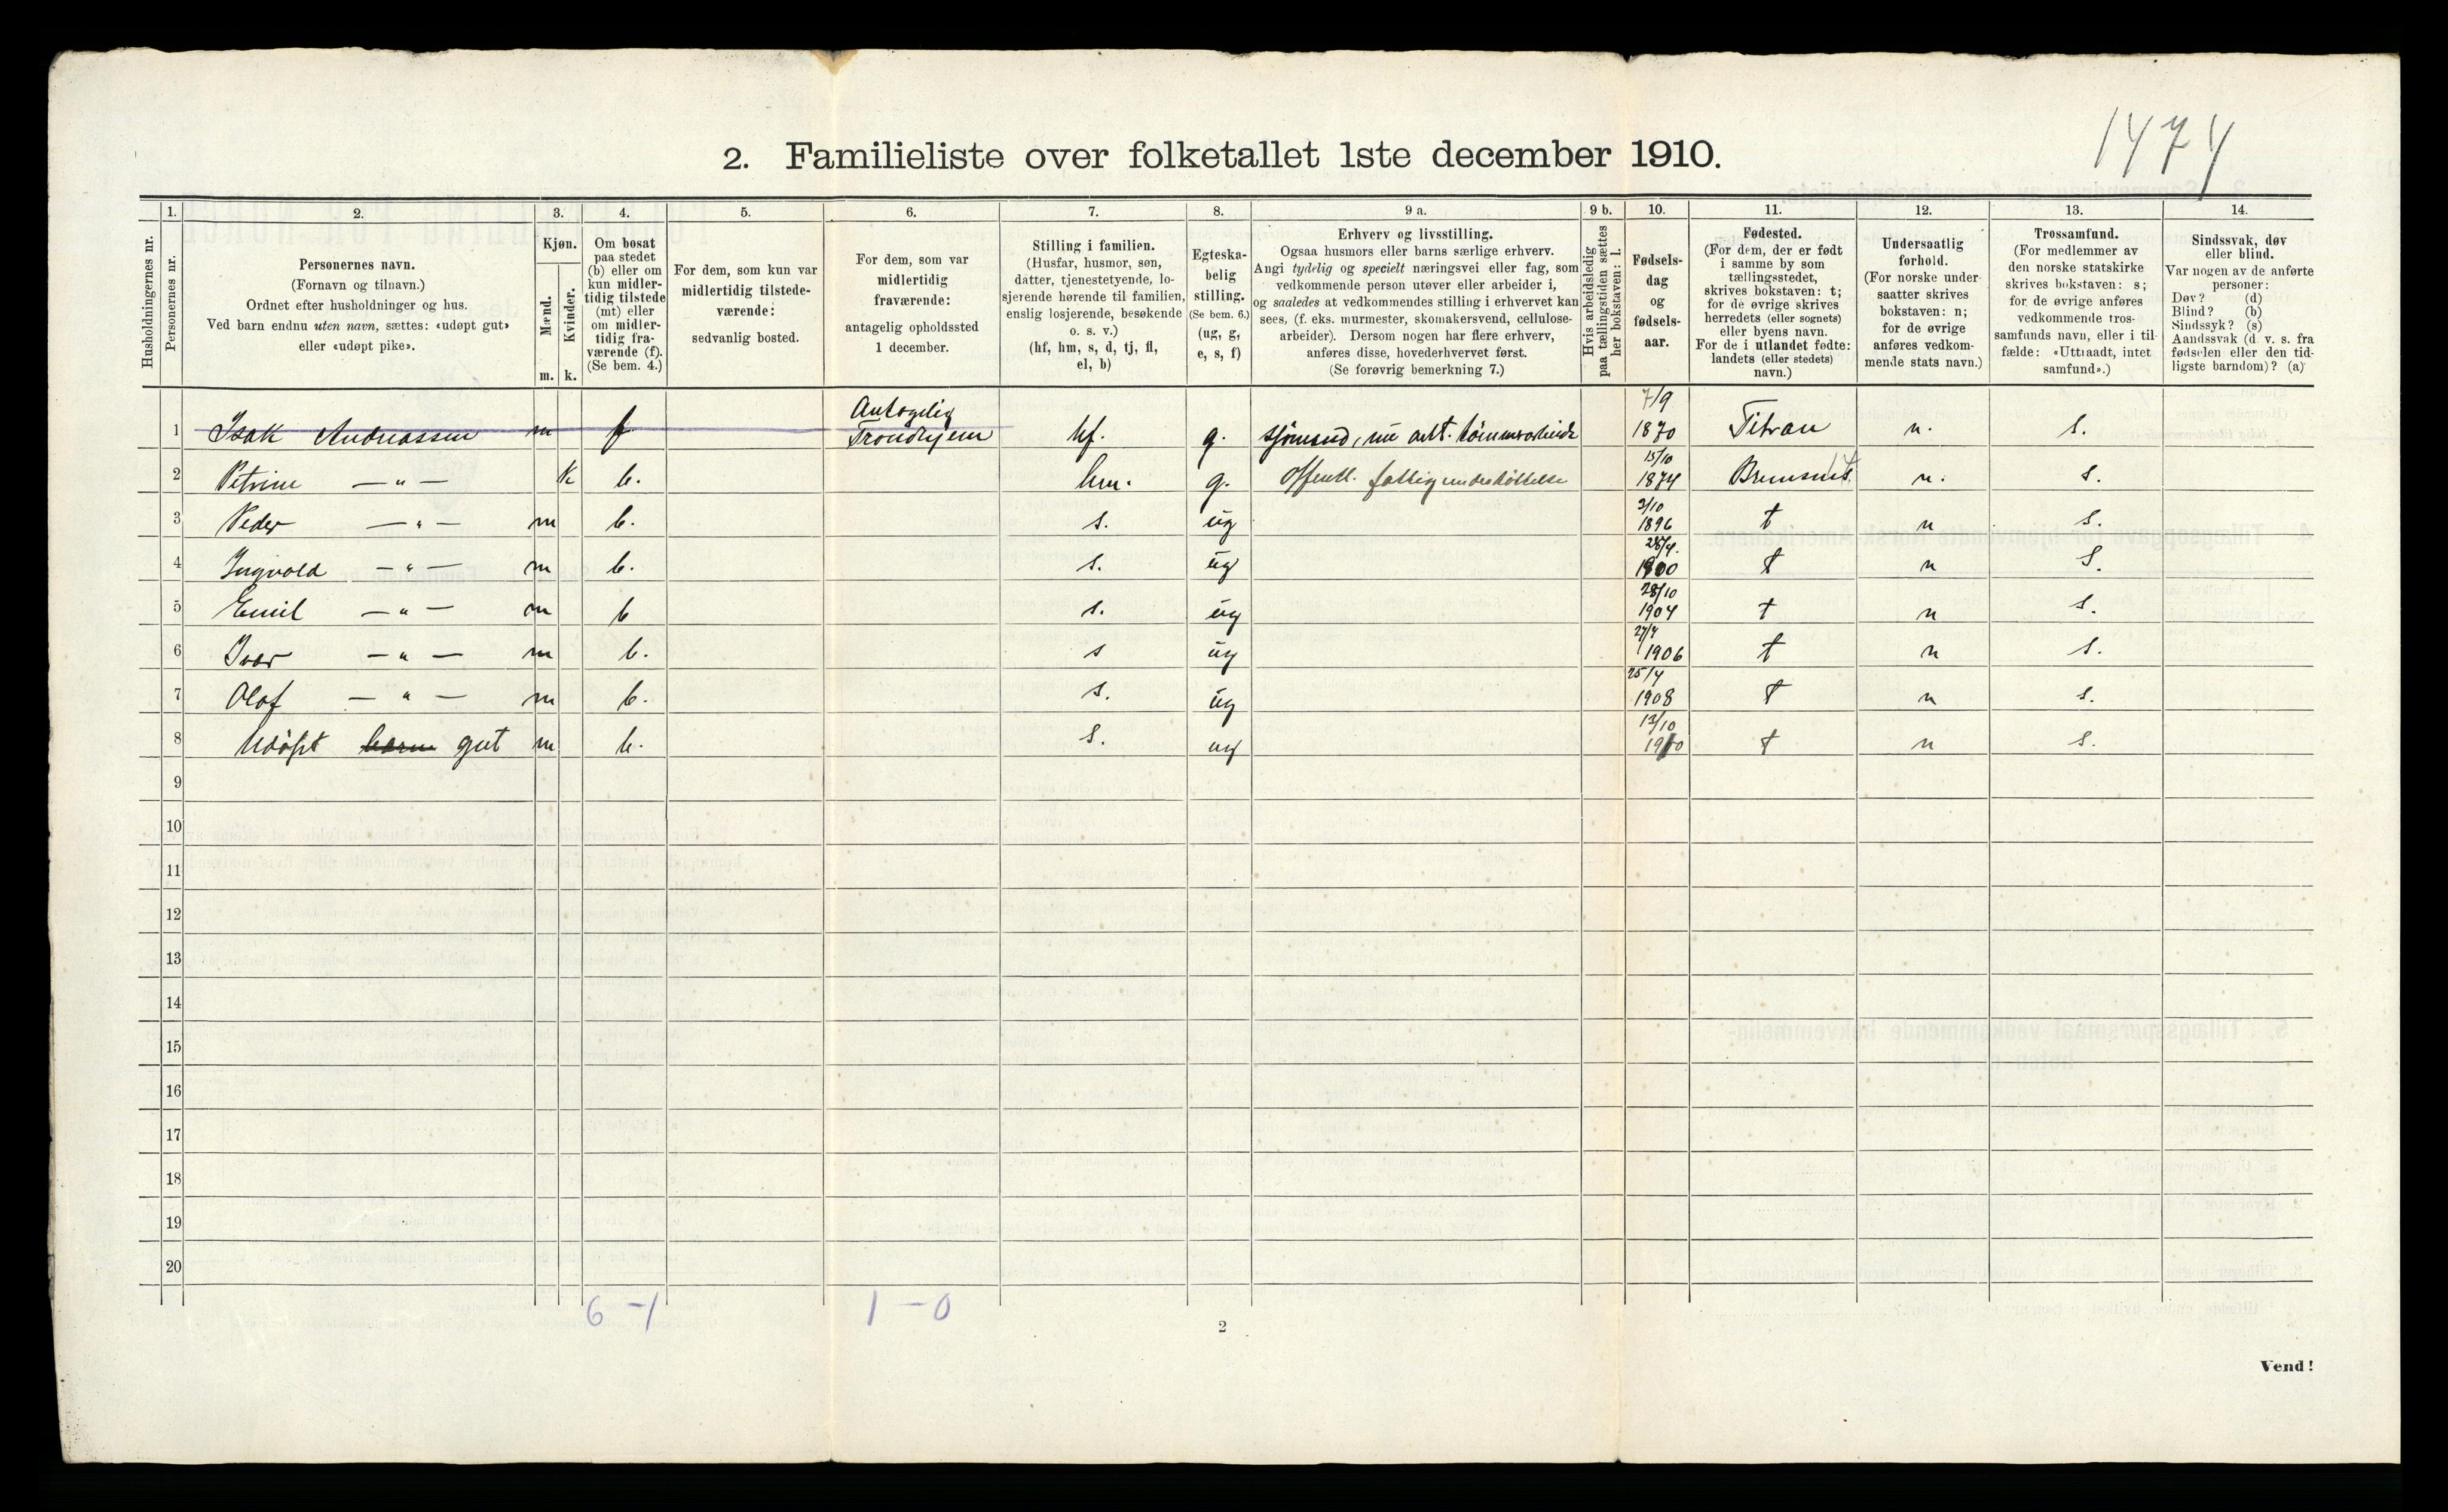 1474
2. Familieliste over folketallet 1ste december 1910.
Husholdningernes nr.
1.
Personernes nr.
2.
Personernes navn.
(Fornavn og tilnavn.)
Ordnet efter husholdninger og hus.
Ved barn endnu uten navn, sættes: «udøpt gut»
eller «udøpt pike».
3.
Kjøn.
Mænd.
Kvinder.
m. k.
4.
Om bosat
paa stedet
(b) eller om
kun midler-
tidig tilstede
(mt) eller
om midler-
tidig fra-
værende (f).
(Se bem. 4.)
5.
For dem, som kun var
midlertidig tilstede-
værende:
sedvanlig bosted.
6.
For dem, som var
midlertidig
fraværende:
antagelig opholdssted
1 december.
7.
Stilling i familien.
(Husfar, husmor, søn,
datter, tjenestetyende, lo-
sjerende hørende til familien,
enslig losjerende, besøkende
o. s. v.)
(hf, hm, s, d, tj, fl,
el, b)
8.
Egteska-
belig
stilling.
(Se bem. 6.)
(ug, g,
e, s, f)
9 a.
Erhverv og livsstilling.
Ogsaa husmors eller barns særlige erhverv.
Angi tydelig og specielt næringsvei eller fag, som
vedkommende person utøver eller arbeider i,
og saaledes at vedkommendes stilling i erhvervet kan
sees, (f. eks. murmester, skomakersvend, cellulose-
arbeider). Dersom nogen har flere erhverv,
anføres disse, hovederhvervet først.
(Se forøvrig bemerkning 7.)
9 b.
Hvis arbeidsledig
paa tællingstiden sættes
her bokstaven: l.
10.
Fødsels-
dag
og
fødsels-
aar.
11.
Fødested.
(For dem, der er født
i samme by som
tællingsstedet,
skrives bokstaven: t;
for de øvrige skrives
herredets (eller sognets)
eller byens navn.
For de i utlandet fødte:
landets (eller stedets)
navn.)
12.
Undersaatlig
forhold.
(For norske under-
saatter skrives
bokstaven: n;
for de øvrige
anføres vedkom-
mende stats navn.)
13.
Trossamfund.
(For medlemmer av
den norske statskirke
skrives bokstaven: s;
for de øvrige anføres
vedkommende tros-
samfunds navn, eller i til-
fælde: «Uttraadt, intet
samfund».)
14.
Sindssvak, døv
eller blind.
Var nogen av de anførte
personer:
Døv? (d)
Blind? (b)
Sindssyk? (s)
Aandssvak (d. v. s. fra
fødselen eller den tid-
ligste barndom)? (a)
1 Isak Andreassen m f Antagelig Trondhjem hf. g. sjömand, nu 7/9 1870 Titran n. s.
2 Petrine — " — k b. hm. g. Offentl. fattigunderstöttelse 15/10 1874 Bremsnes n. s.
3 Peder — " — m b. s. ug 3/10 1896 t n s.
4 Ingvald — " — m b. s. ug 28/4. 1900 t n s.
5 Emil — " — m b s. ug 28/10 1904 t n s.
6 Ivar — " — m b. s ug 27/4 1906 t n s.
7 Olaf — " — m b. s. ug 25/4 1908 t n s.
8 Udöpt barn gut m b. s. ug 13/10 1910 t n s.
9
10
11
12
13
14
15
16
17
18
19
20
6 - 1 1 - 0
2
Vend!